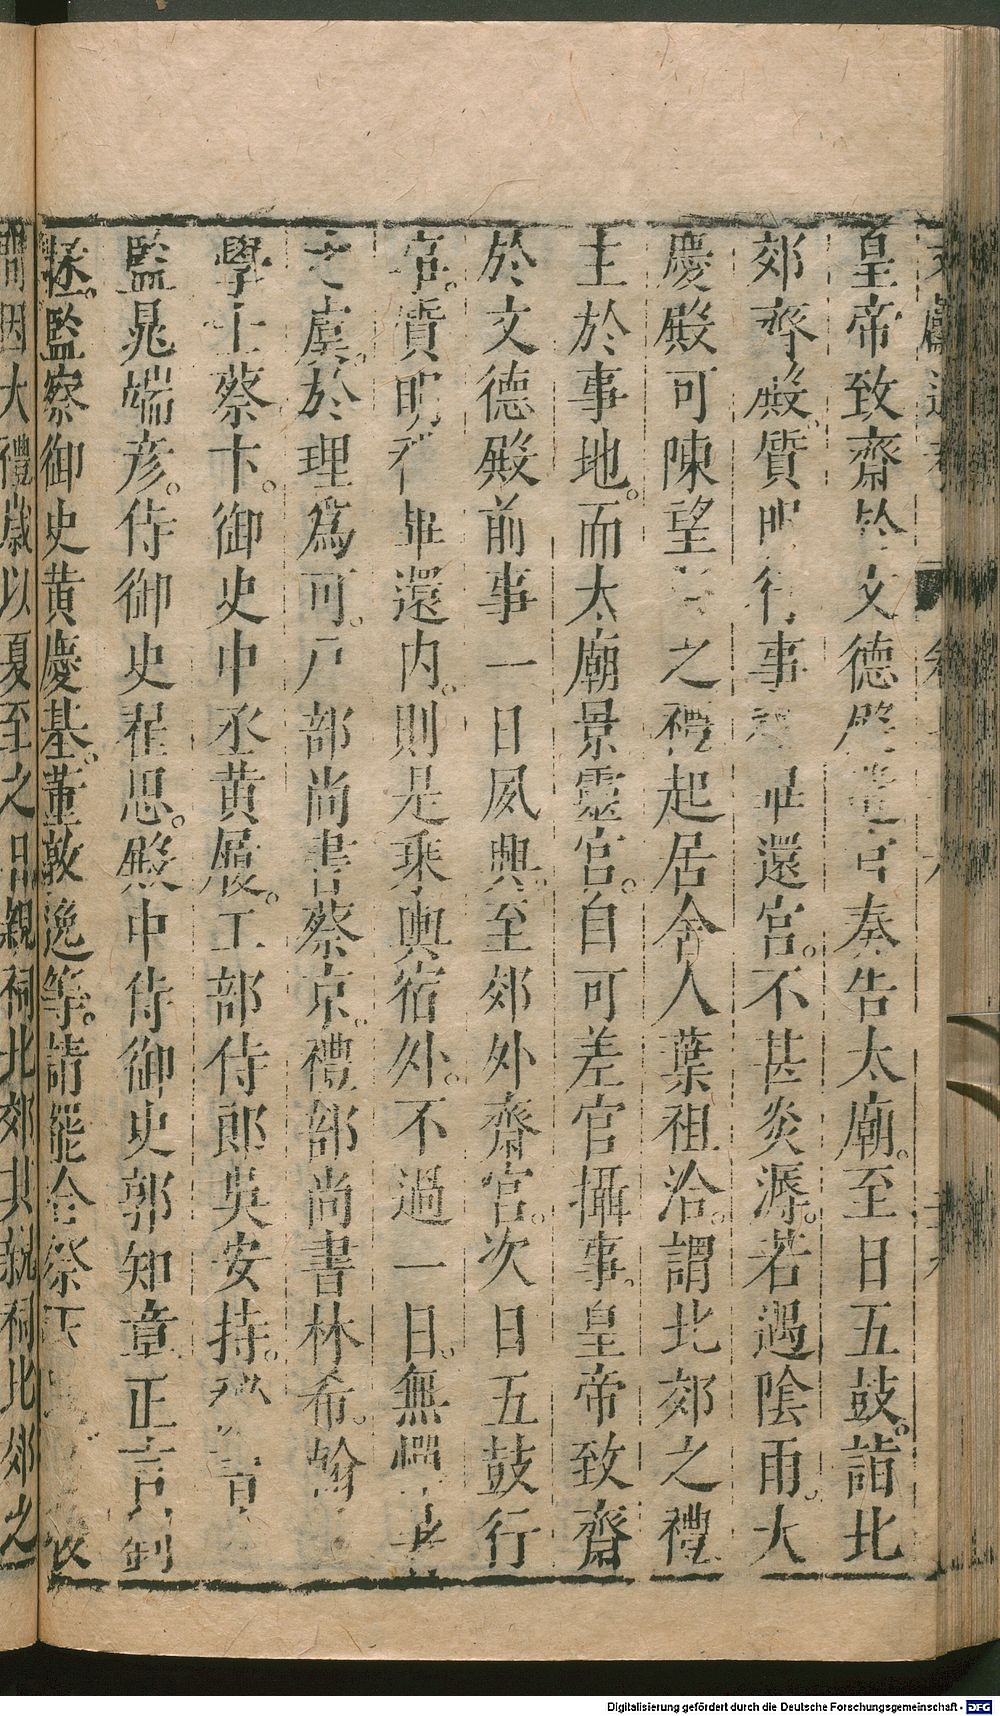 皇帝致齋於文德殿遣官奏告太廟。至日五鼓。詣北
郊齊殿。質明行事畢還宮。不甚炎溽。若遇陰雨。大
慶殿可陳望之禮起居舍人葉祖洽。謂北郊之禮
主於事地。而太廟景靈宮。自可差官攝事。皇帝致齋
於文德殿前事一日夙興。至郊外齋宮。次日五鼓行
宮。質明行畢還内。則是乘輿宿外。不過一日。無
之虞。於理爲可。戸部尚書蔡京。禮部尚書林希。翰
學士蔡卞。御史中丞黄履。工部侍郎吳安持。
監晁端彦。侍御史翟思。殿中侍御史郭知章正言劉
拯。監察御史黄慶基。董敦逸等。請罷合祭
間因大禮歲以夏至之日親祠北郊其親祠北郊之
Digitalisierung gefördert durch die Deutsche Forschungsgemeinschaft - DFG